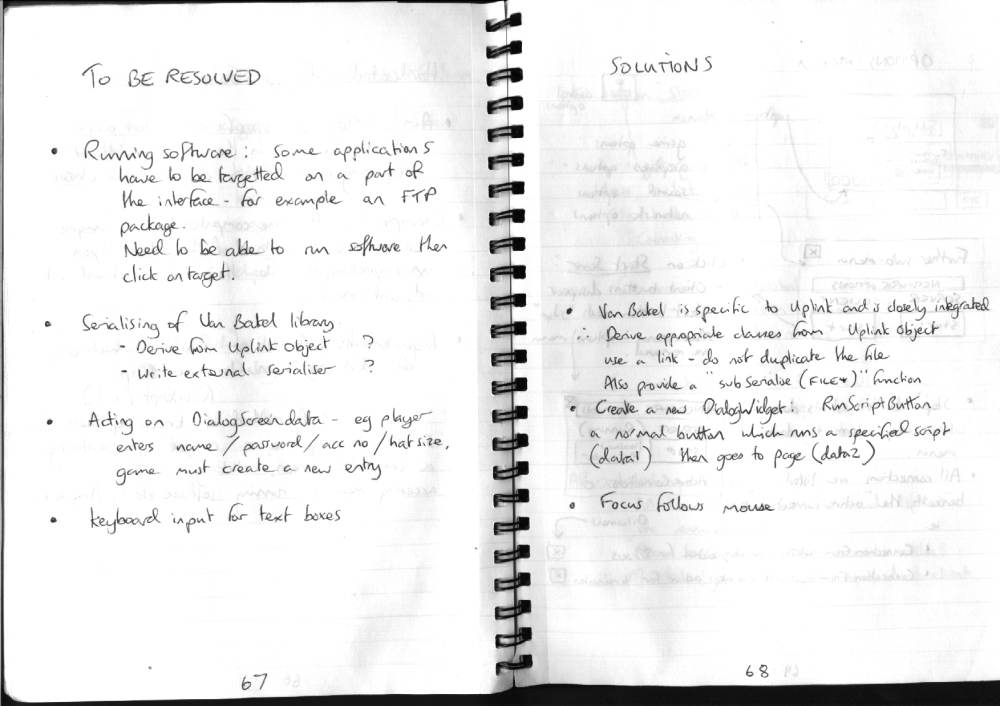 TO BE RESOLVED
• Running software: Some applications
have to be targetted on a part of
the interface - for example an FTP
package.
Need to be able to run software then
click on target.
• Serialising of Van Bakel library
- Derive from Uplink Object ?
- Write external serialiser ?
• Acting on DialogScreen data - eg player
enters name / password / acc no / hat size,
game must create a new entry
• keyboard input for text boxes
67
SOLUTIONS
• Van Bakel is specific to Uplink and is closely integrated
∴ Derive appropriate classes from Uplink Object
use a link - do not duplicate the file
Also provide a "sub Serialise (FILE*)" function
• Create a new DialogWidget: RunScriptButton
a normal button which runs a specified script
(data1) then goes to page (data2)
• Focus follows mouse
68